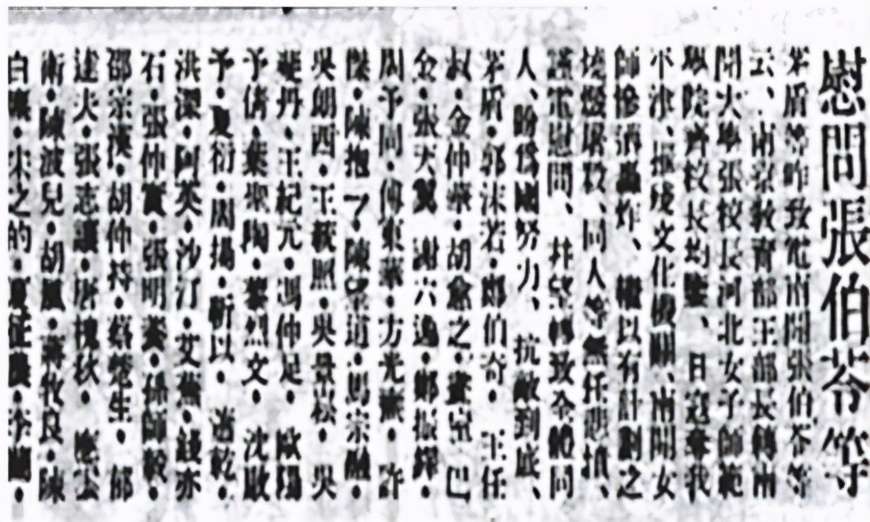 慰問張伯苓等
茅盾等昨致電南開張伯苓等
云、南京教育部王部長轉南
開大學張校長河北女子師範
學院齊校長均鑒、日寇奪我
平津、摧殘文化機關、南開女
師慘遭轟炸、繼以有計劃之
焚燬屠殺、同人等無任悲憤、
謹電慰問、并望轉致全體同
人、盼爲國努力、抗敵到底、
茅盾・郭沫若・鄭伯奇・王任
叔・金仲華・胡愈之・畫室・巴
金・張天翼・謝六逸・鄭振鐸・
周予同・傅東華・方光燾・許
傑・陳抱一・陳望道・馬宗融・
吳朗西・王統照・吳景崧・吳
斐丹・王紀元・馮仲足・歐陽
予倩・葉聖陶・黎烈文・沈啟
予・夏衍・周揚・靳以・蕭乾・
洪深・阿英・沙汀・艾蕪・錢亦
石・張仲實・張明養・孫師毅・
邵宗漢・胡仲持・蔡楚生・郁
達夫・張志讓・唐槐秋・應雲
衛・陳波兒・胡風・蔣牧良・陳
白塵・宋之的・夏征農・李蘭・